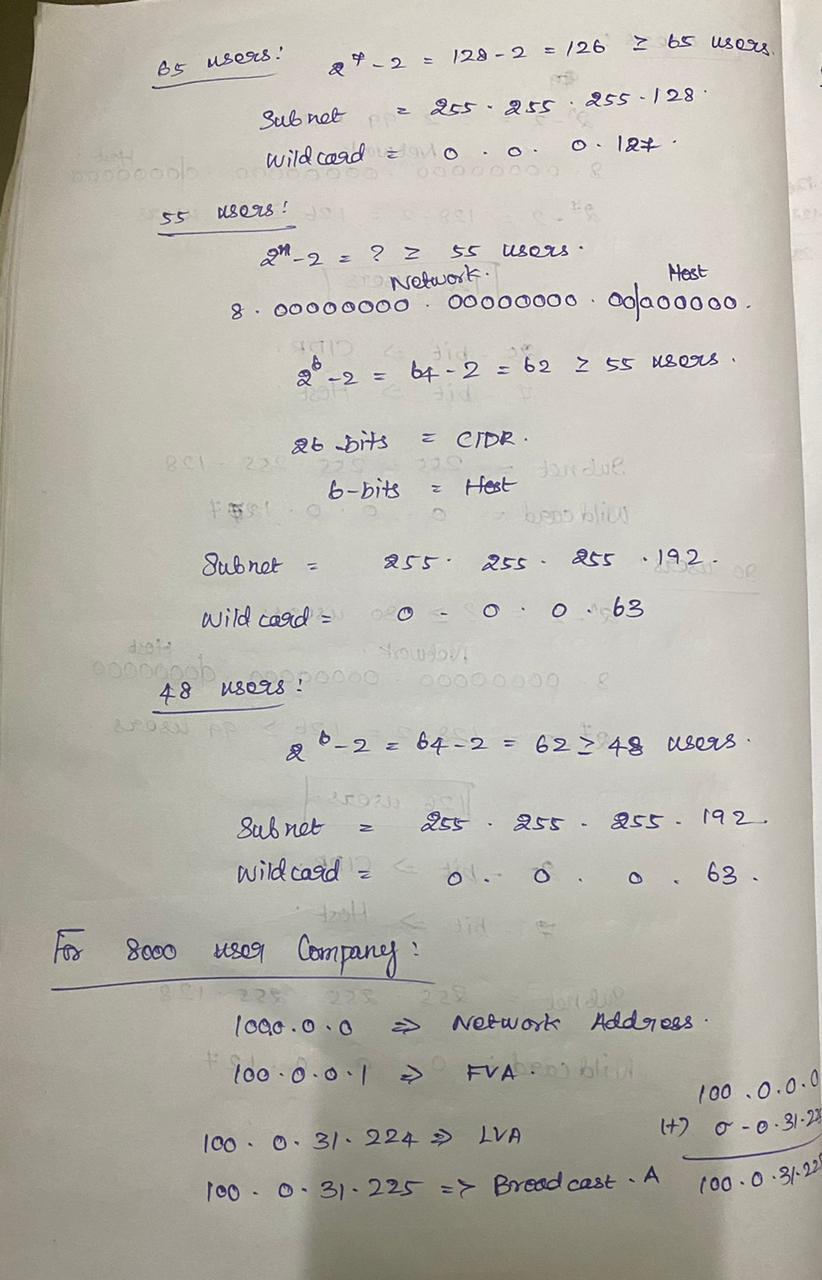 65 users:
2^7 - 2 = 128 - 2 = 126 ≥ 65 users.
Subnet = 255 . 255 . 255 . 128 .
Wildcard = 0 . 0 . 0 . 127 .
55 users:
2^n - 2 = ? ≥ 55 users .
Network . Host
8 . 00000000 . 00000000 . 00/000000 .
2^6 - 2 = 64 - 2 = 62 ≥ 55 users .
26 - bits = CIDR .
6 - bits = Host
Subnet = 255 . 255 . 255 . 192 .
Wild card = 0 - 0 . 0 . 63
48 users :
2^6 - 2 = 64 - 2 = 62 ≥ 48 users .
Subnet = 255 . 255 - 255 - 192 .
Wildcard = 0 . 0 . 0 . 63 .
For 8000 user Company :
1000.0.0 => Network Address .
100.0.0.1 => FVA .
100 . 0 . 31 . 224 => LVA
100 - 0 . 31 . 225 => Broadcast . A
100 . 0 . 0 . 0
(+) 0 - 0 . 31 .
100 . 0 . 31 .